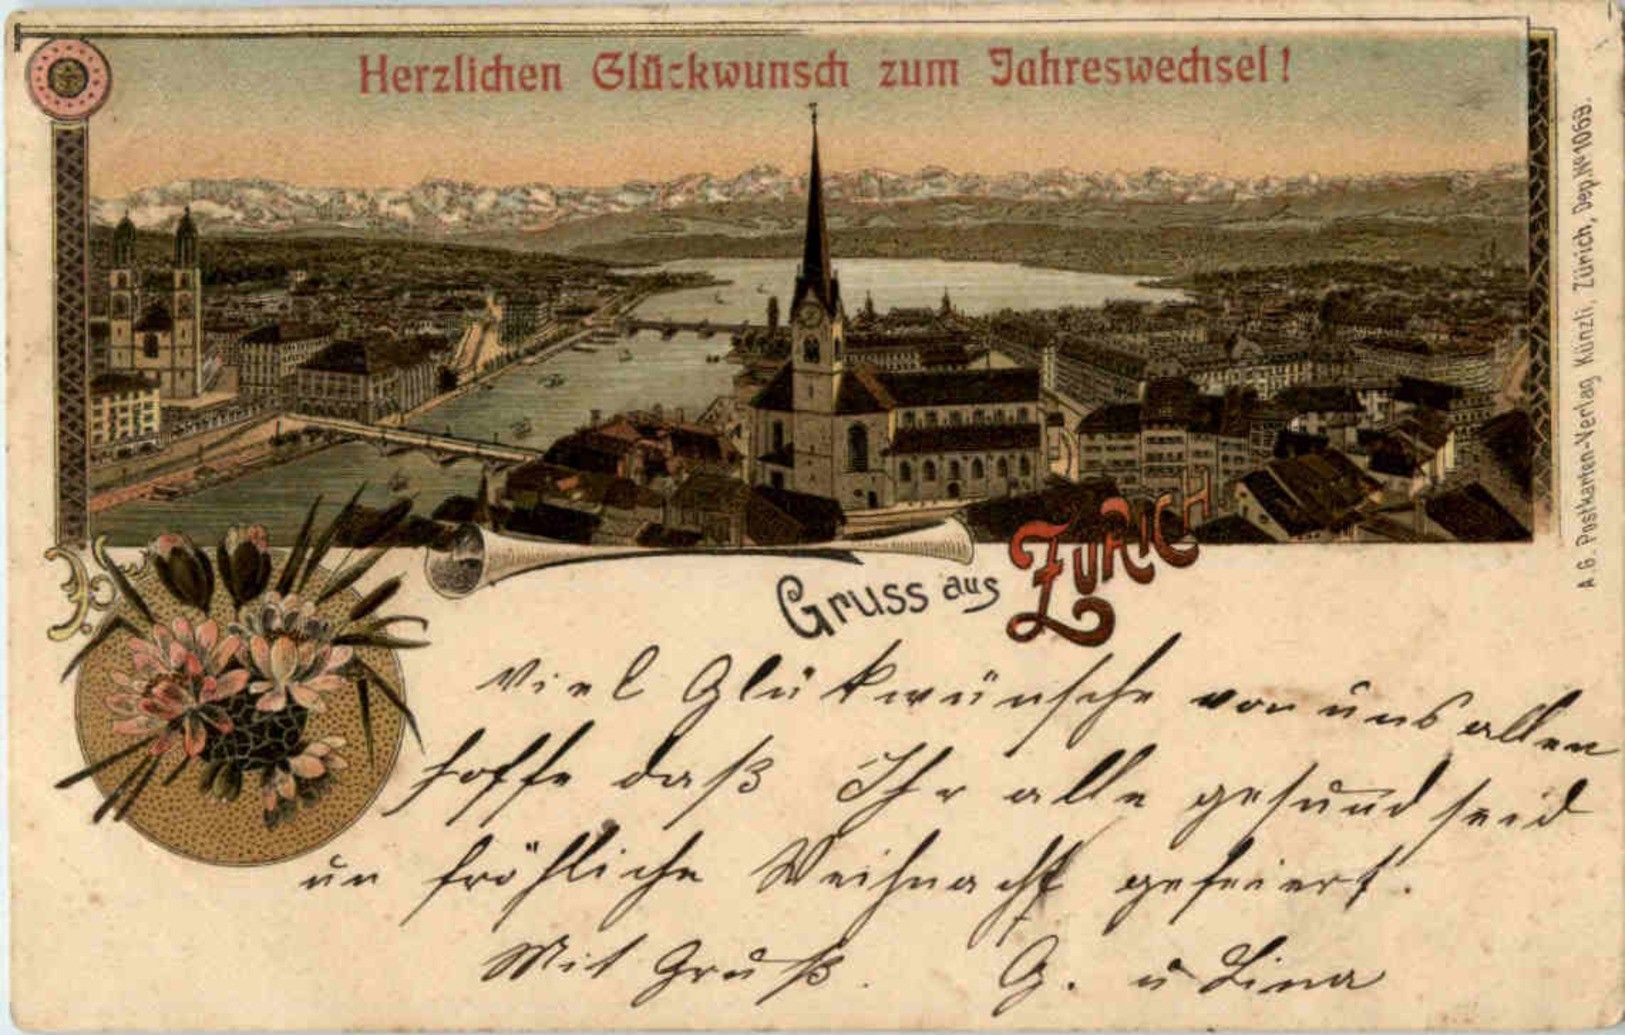 Herzlichen Glückwunsch zum Jahreswechsel!
A. G. Postkarten-Verlag Künzli, Zürich, Dep. No 1069.
Gruss aus ZÜRICH
Viel Glükwünsche von uns allen
hoffe daß Ihr alle gesund seid
un fröhliche Weihnacht gefeiert.
Mit Gruß. G. u Lina